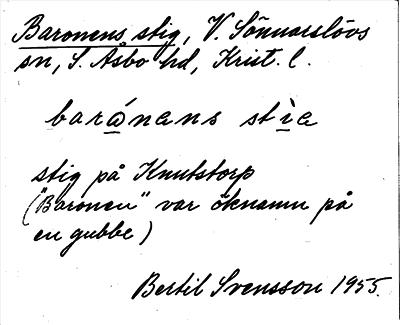 Baronens stig, V. Sönnarslövs
sn, S. Åsbo hd, Krist. l.
barånens stìa
stig på Knutstorp
("Baronen" var öknamn på
en gubbe)
Bertil Svensson 1955.